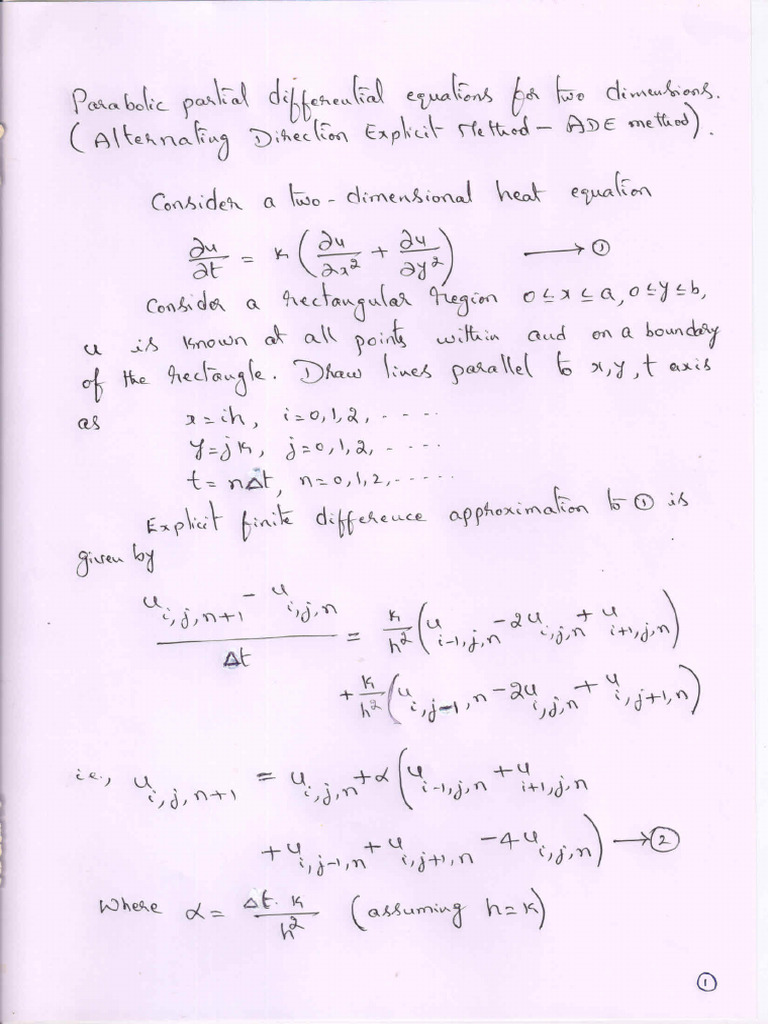 Parabolic partial differential equations for two dimensions.
(Alternating Direction Explicit Method - ADE method).
Consider a two-dimensional heat equation
∂u/∂t = k(∂u/∂x² + ∂u/∂y²) ⟶ ①
Consider a rectangular region 0≤x≤a, 0≤y≤b,
u is known at all points within and on a boundary
of the rectangle. Draw lines parallel to x,y,t axis
as x=ih, i=0,1,2,.....
y=jk, j=0,1,2,.....
t=nΔt, n=0,1,2,......
Explicit finite difference approximation to ① is
given by
(u_{i,j,n+1} - u_{i,j,n})/Δt = k/h² (u_{i-1,j,n} - 2u_{i,j,n} + u_{i+1,j,n})
+ k/h² (u_{i,j-1,n} - 2u_{i,j,n} + u_{i,j+1,n})
i.e., u_{i,j,n+1} = u_{i,j,n} + α(u_{i-1,j,n} + u_{i+1,j,n}
+ u_{i,j-1,n} + u_{i,j+1,n} - 4u_{i,j,n}) ⟶ ②
Where α = Δt.k/h² (assuming h=k)
①